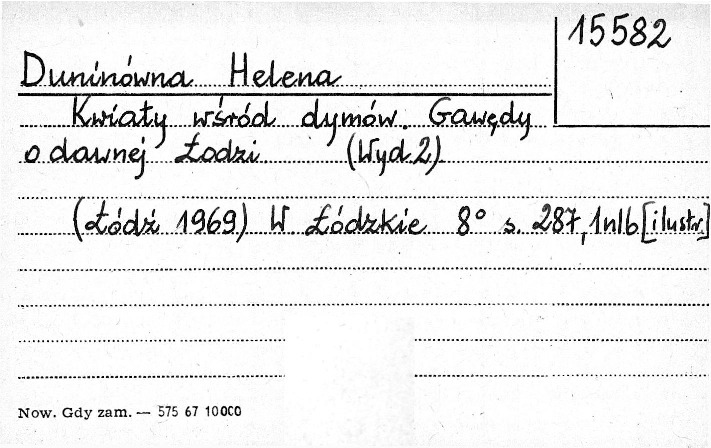 15582
Duninówna Helena
Kwiaty wśród dymów. Gawędy
o dawnej Łodzi (Wyd. 2)
(Łódź 1969) W Łódzkie 8° s. 287, 1 nlb [ilustr.]
Now. Gdy zam. — 575 67 10000